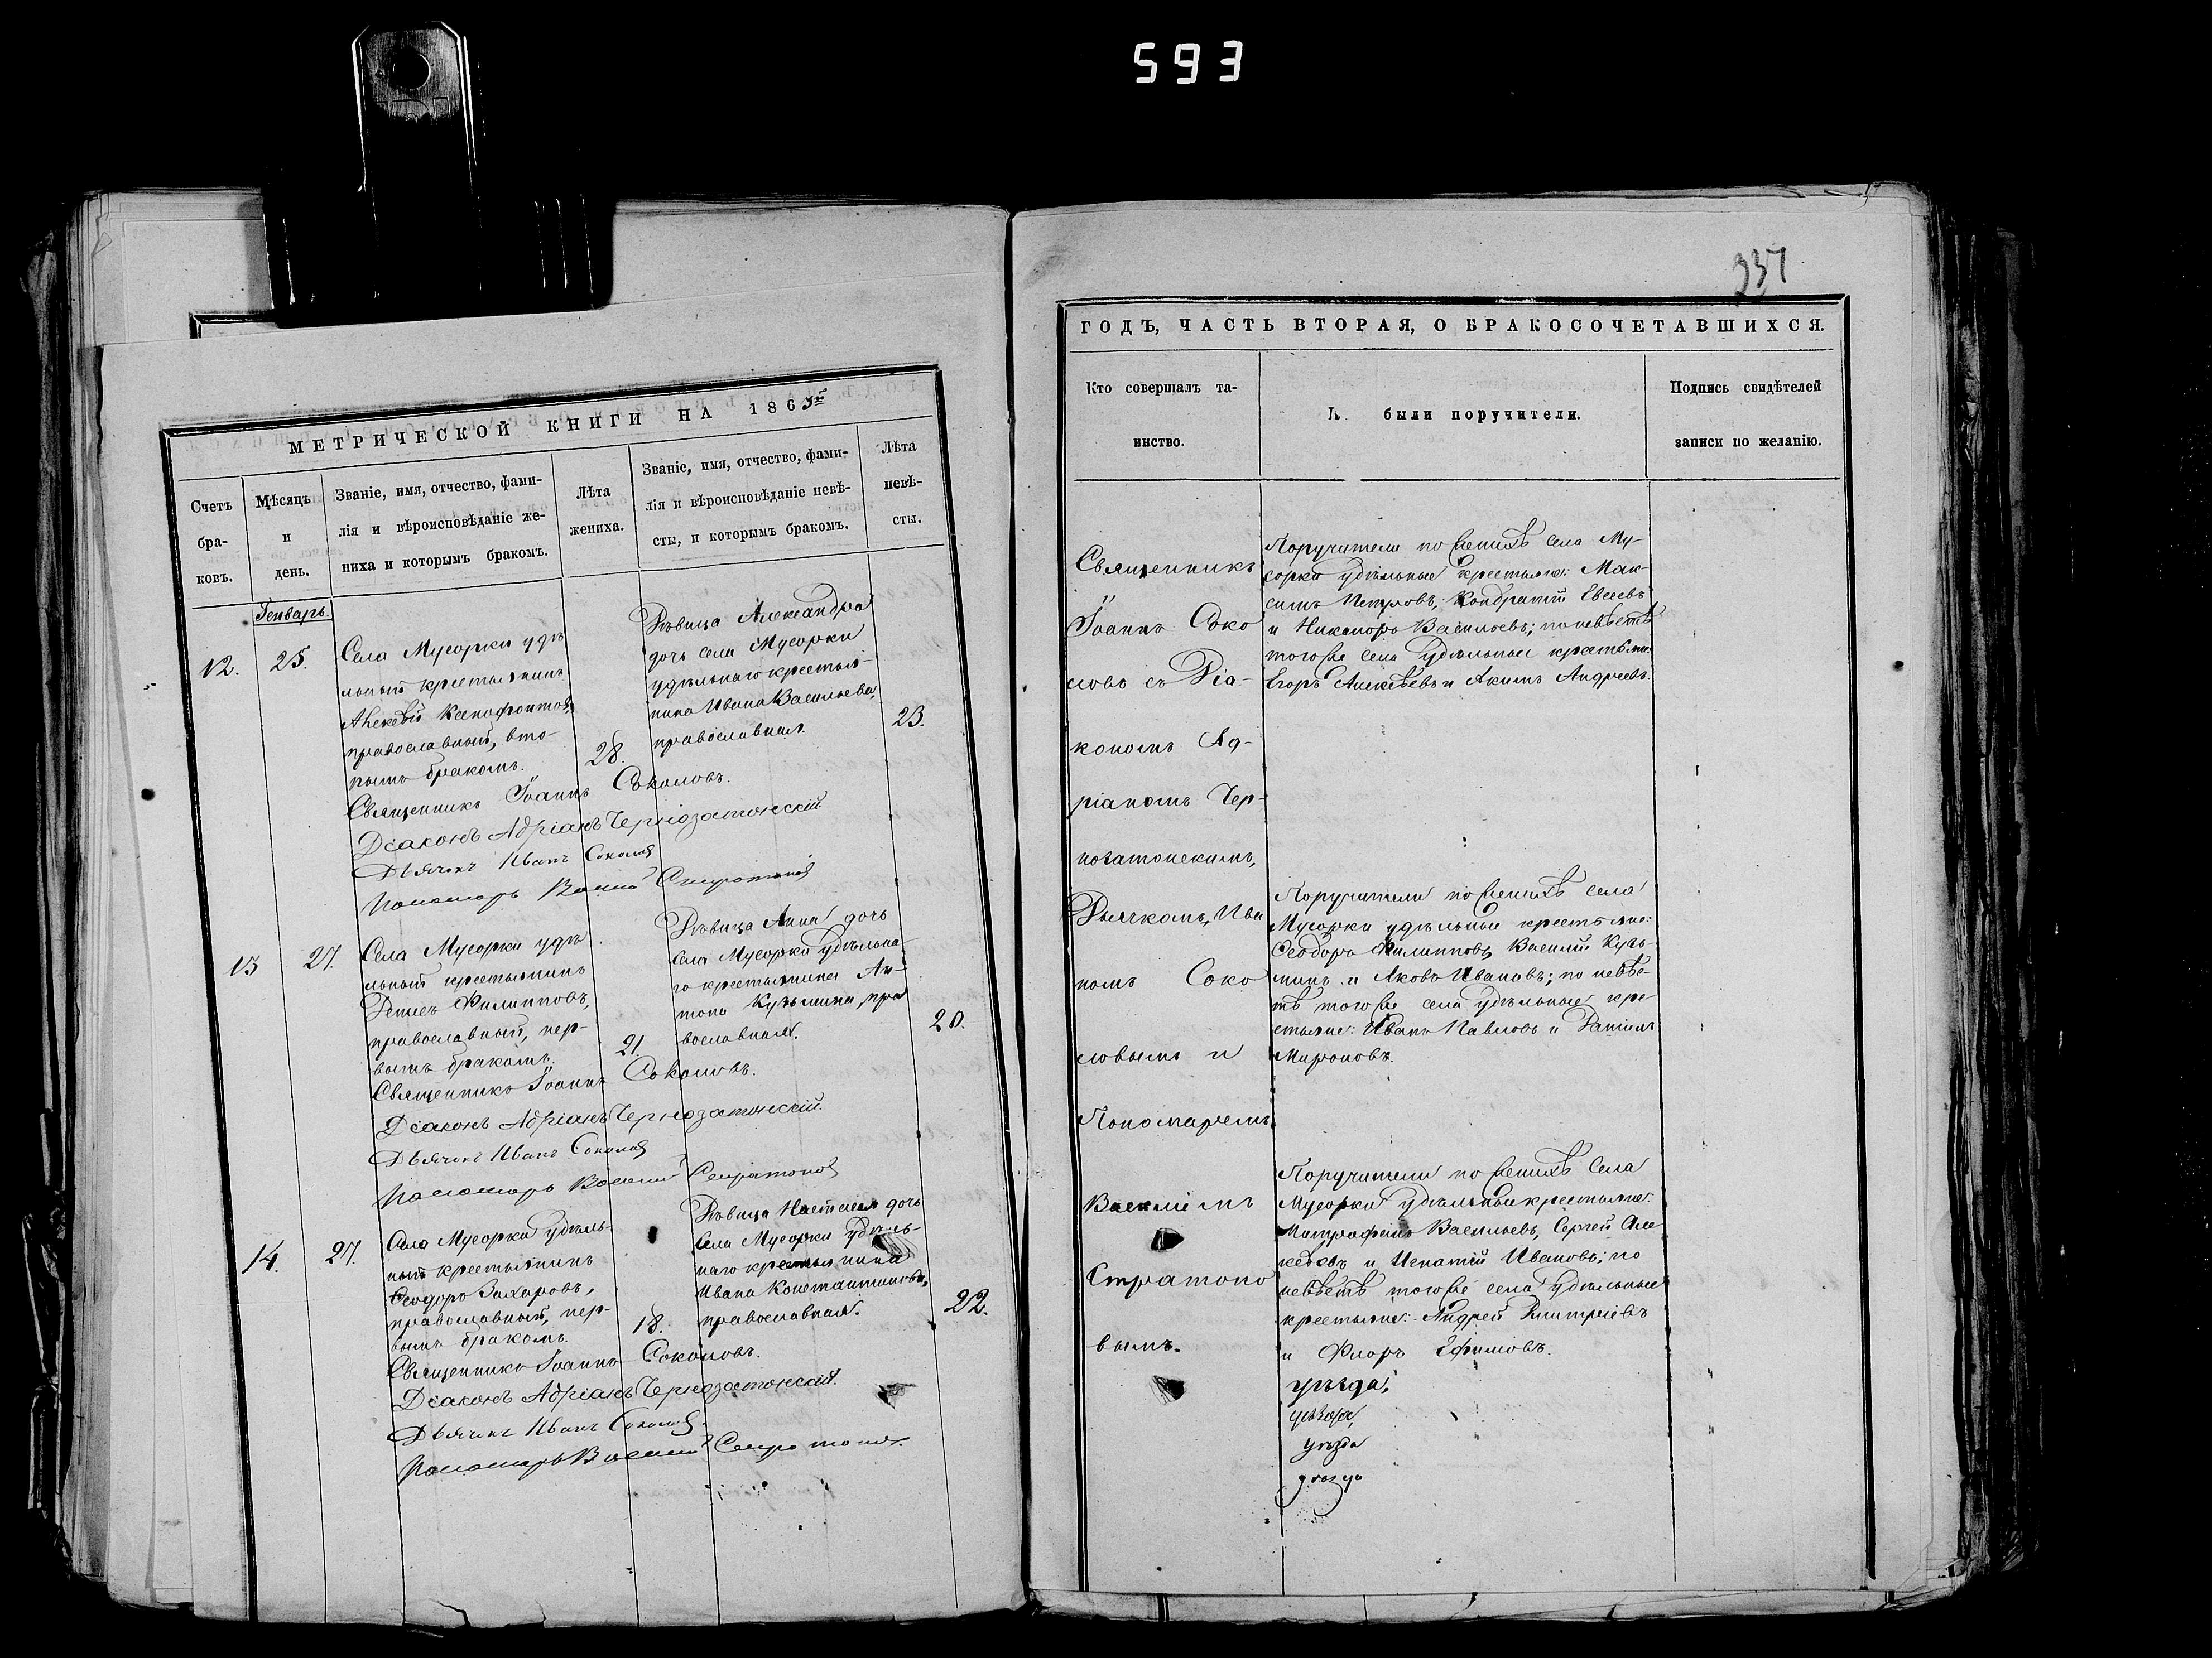 593
МЕТРИЧЕСКОЙ КНИГИ НА 1863й
Счетъ бра-ковъ.
Мѣсяцъ и день.
Званіе, имя, отчество, фами-
лія и вѣроисповѣданіе же-
ниха и которымъ бракомъ.
Лѣта жениха.
Званіе, имя, отчество, фами-
лія и вѣроисповѣданіе невѣ-
сты, и которымъ бракомъ.
Лѣта невѣ-сты.
Генварь.
12.
25.
Села Мусорки удѣ
льный крестьянинъ
Алексѣй Ксенофонтовъ,
православный, вто-
рымъ бракомъ.
28.
Дѣвица Александра
дочь села Мусорки
удѣльнаго крестья-
нина Ивана Васильева,
православная.
23.
Священникъ Іоаннъ Соколовъ.
Діаконъ Адріанъ Чернозатонскій
Дьячекъ Иванъ Соколов
Пономарь Василій Стратонов
13
27.
Села Мусорки удѣ
льный крестьянинъ
Денисъ Филипповъ,
православный, пер-
вымъ бракомъ.
21.
Дѣвица Анна дочь
села Мусорки удѣльна-
го крестьянина Ан-
тона Кузьмина, пра
вославная.
20.
Священникъ Іоаннъ Соколовъ.
Діаконъ Адріанъ Чернозатонскій.
Дьячекъ Иванъ Соколов
Пономарь Василій Стратонов
14.
27.
Села Мусорки удѣль-
ный крестьянинъ
Ѳеодоръ Захаровъ,
православный, пер-
вымъ бракомъ.
18.
Дѣвица Настасья дочь
села Мусорки удѣль-
наго крестьянина
Ивана Константинова,
православная.
22.
Священникъ Іоаннъ Соколовъ.
Діаконъ Адріанъ Чернозатонскій.
Дьячекъ Иванъ Соколов.
Пономарь Василій Стратонов.
337
ГОДЪ, ЧАСТЬ ВТОРАЯ, О БРАКОСОЧЕТАВШИХСЯ.
Кто совершалъ та-
инство.
были поручители.
Подпись свидѣтелей
записи по желанію.
Священникъ
Іоаннъ Соко
ловъ съ Діа-
кономъ Ад-
ріаномъ Чер-
нозатонскимъ,
Дьячкомъ Ива
номъ Соко
ловымъ и
Пономаремъ
Василіемъ
Стратоно
вымъ.
Поручители по женихѣ села Му-
сорки удѣльные крестьяне: Мак-
симъ Петровъ, Кондратій Евсеевъ
и Никаноръ Васильевъ; по невѣстѣ
того же села удѣльные крестьяне:
Егоръ Алексѣевъ и Акимъ Андреевъ.
Поручители по женихѣ села
Мусорки удѣльные крестьяне:
Ѳеодоръ Филипповъ, Василій Кузь-
минъ и Яковъ Ивановъ; по невѣс-
тѣ того же села удѣльные кре-
стьяне: Иванъ Павловъ и Даніилъ
Мироновъ.
Поручители по женихѣ села
Мусорки удѣльные крестьяне:
Митрофанъ Васильевъ, Сергей Але
ксѣевъ и Игнатій Ивановъ; по
невѣстѣ того же села удѣльные
крестьяне: Андрей Дмитріевъ
и Флоръ Ефимовъ.
уѣзда,
уѣзда,
уѣзда
уѣзда